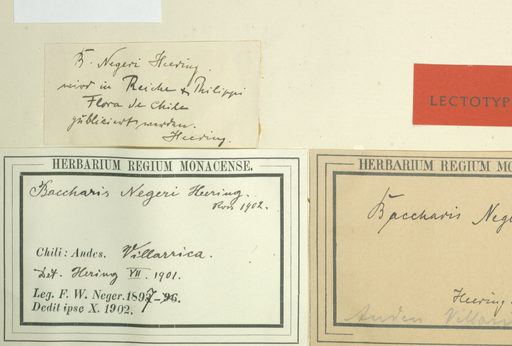 B. Negeri Heering.
wird in Reiche & Philippi
Flora de Chile
publiciert werden.
Heering.
LECTOTYP
HERBARIUM REGIUM MONACENSE.
Baccharis Negeri Heering.
1902.
Chili: Andes. Villarrica.
Det. Hering VII. 1901.
Leg. F. W. Neger. 1897-96.
Dedit ipse X. 1902.
HERBARIUM REGIUM MO
Baccharis Nege
Heering.
Anden Villarr